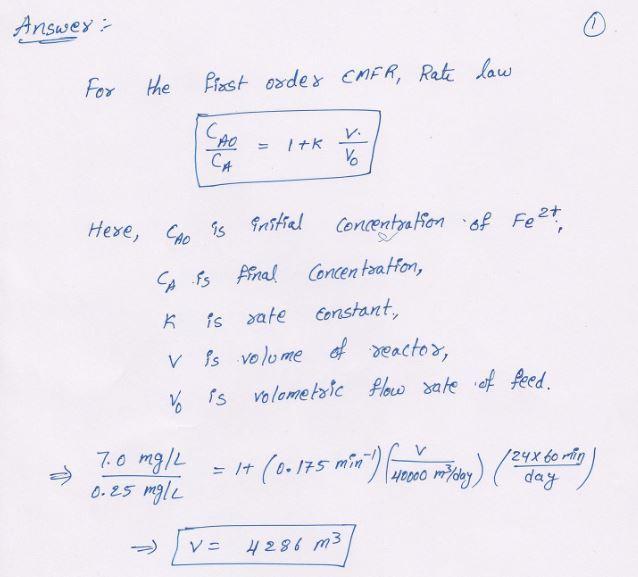 Answer :-
①
For the first order CMFR, Rate law
C_A0 / C_A = 1 + K V / V_0
Here, C_A0 is initial concentration of Fe²⁺,
C_A is final concentration,
K is rate constant,
V is volume of reactor,
V_0 is volometric flow rate of feed.
⇒ 7.0 mg/L / 0.25 mg/L = 1 + (0.175 min⁻¹) (V / 40000 m³/day) (24 x 60 min / day)
⇒ V = 4286 m³